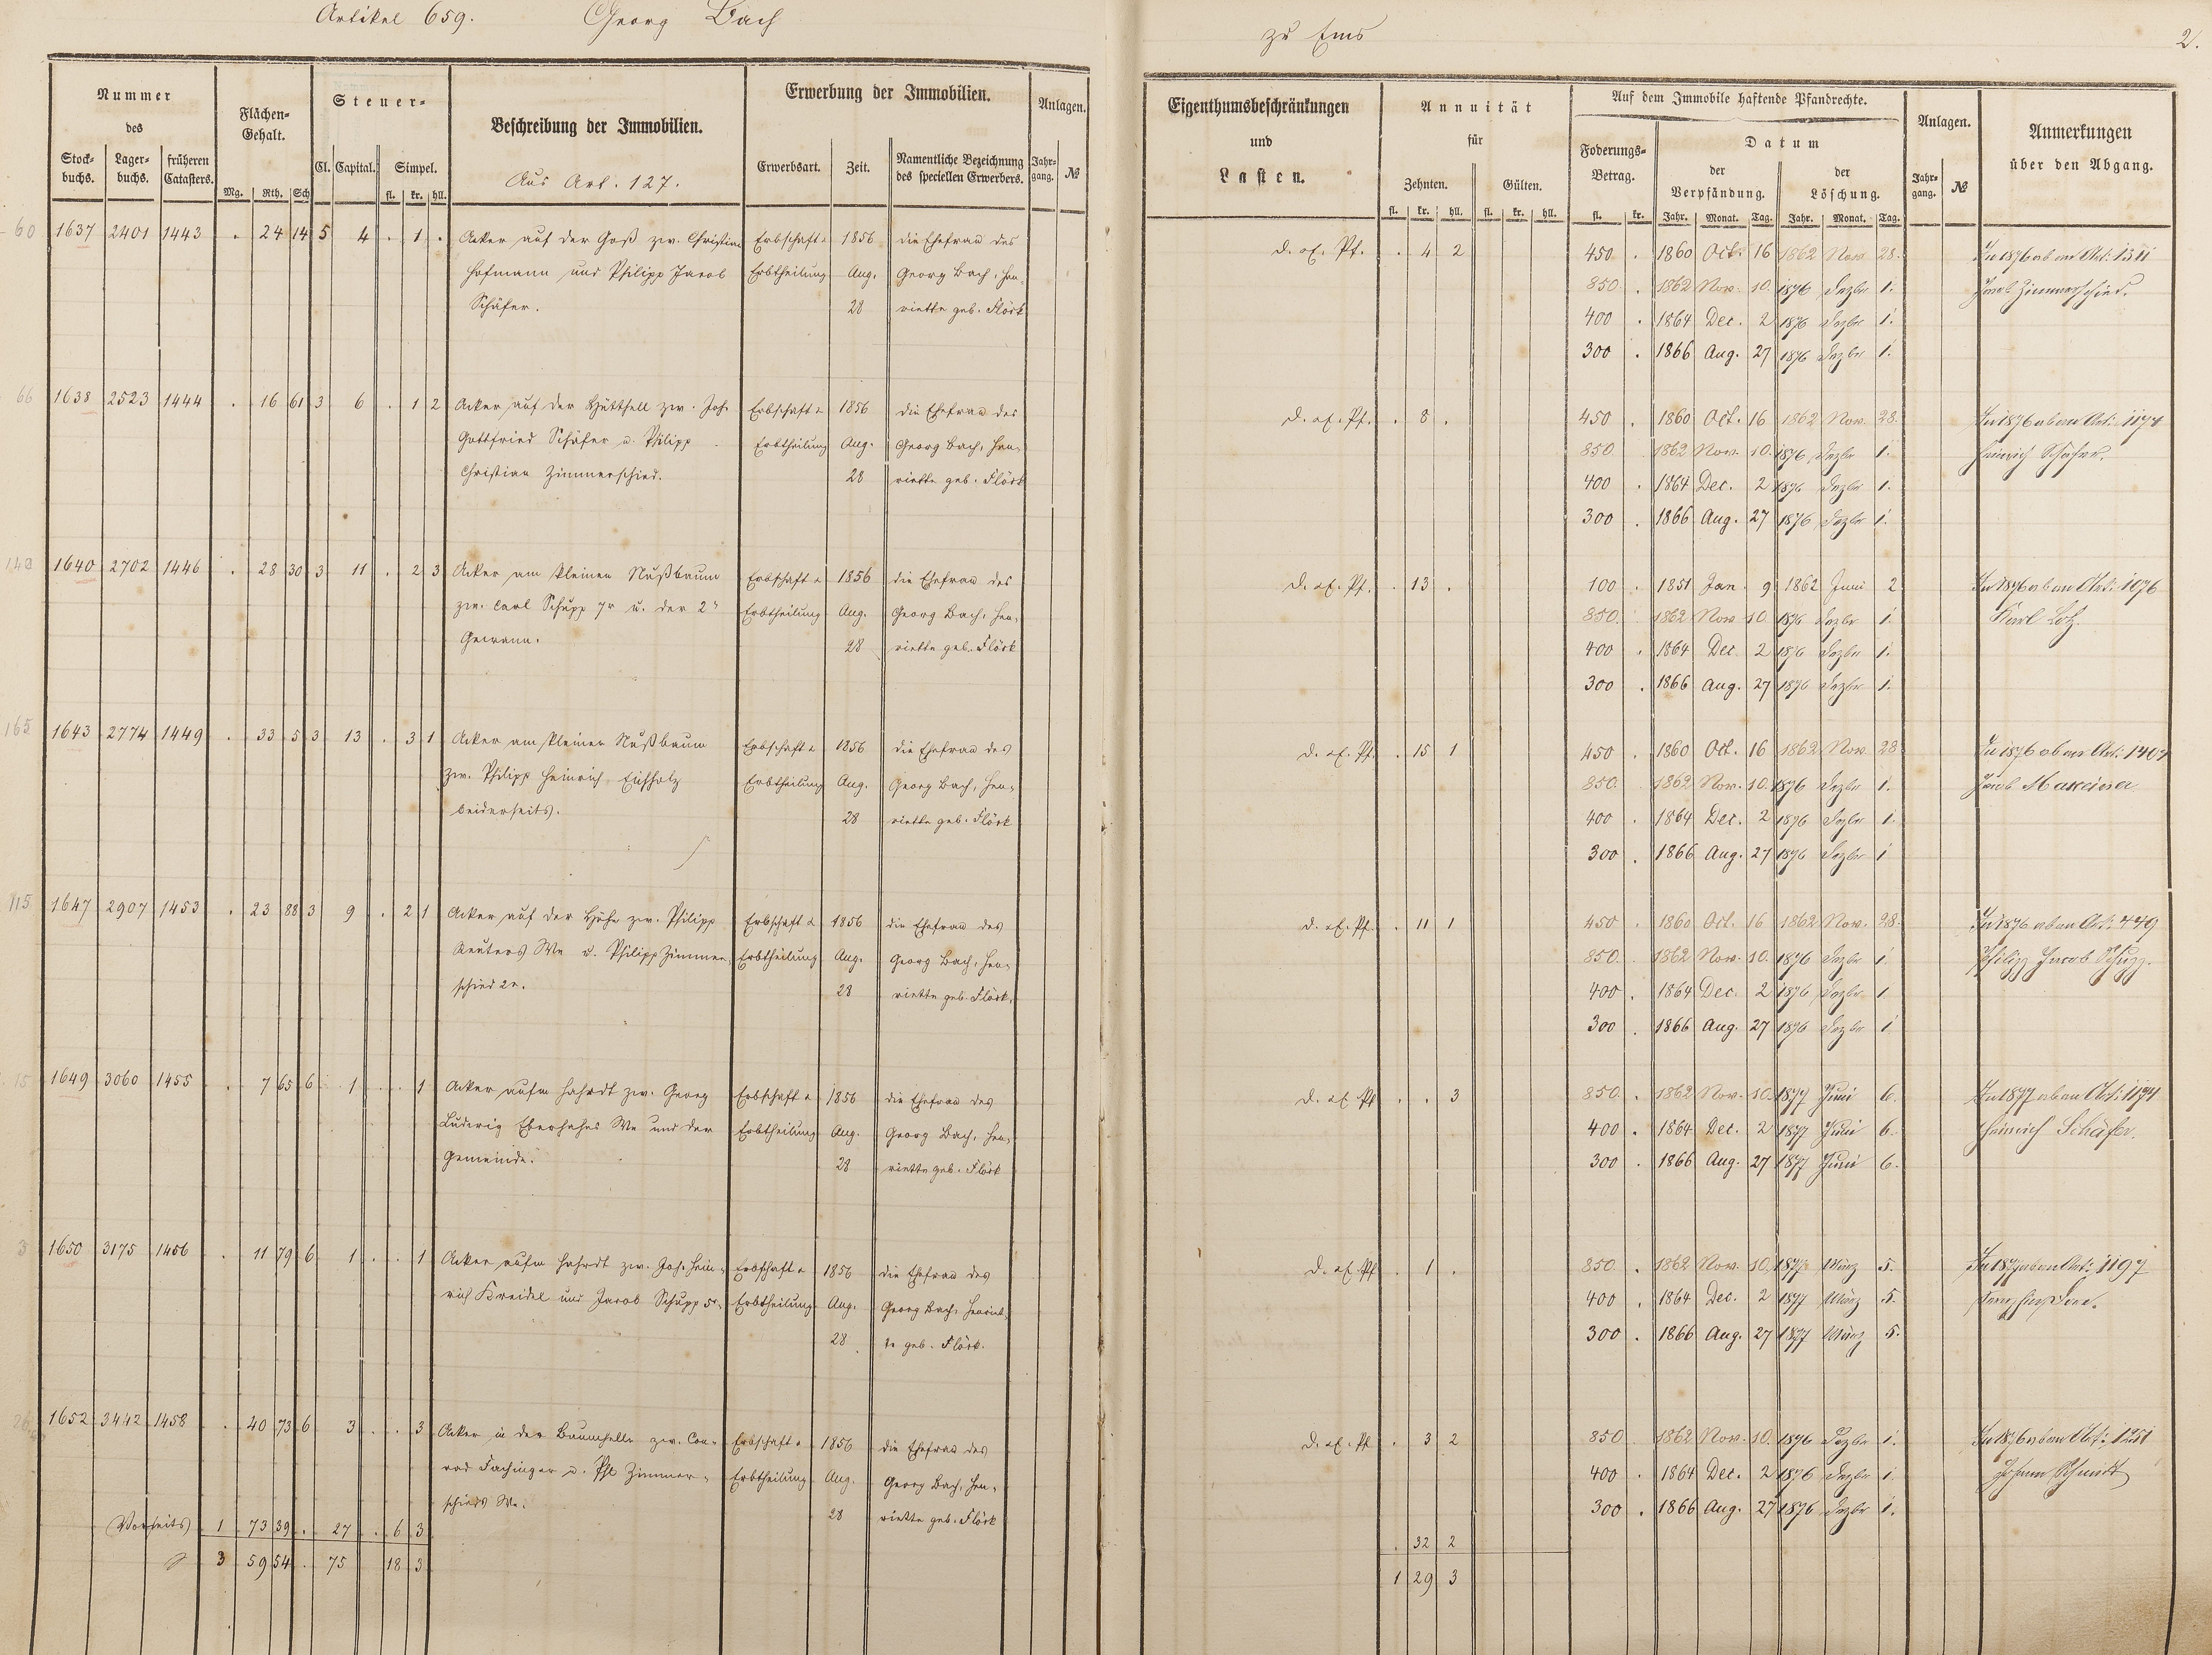 Artikel 659. Georg Bach
zu Ems
2.
Nummer des
Stockbuchs. Lagerbuchs. früheren Catasters.
Flächen-Gehalt.
Mg. Rth. Sch
Steuer-
Cl. Capital. Simpel.
fl. kr. hll.
Beschreibung der Immobilien.
Aus Art. 127.
Erwerbung der Immobilien.
Erwerbsart. Zeit. Namentliche Bezeichnung des speciellen Erwerbers.
Anlagen.
Jahrgang. №
Eigenthumsbeschränkungen und Lasten.
Annuität für
Zehnten. Gülten.
fl. kr. hll. fl. kr. hll.
Auf dem Immobile haftende Pfandrechte.
Foderungs-Betrag.
fl. kr.
Datum
der Verpfändung. der Löschung.
Jahr. Monat. Tag. Jahr. Monat. Tag.
Anlagen.
Jahrgang. №
Anmerkungen über den Abgang.
60 1637 2401 1443 . 24 14 5 4 . 1 . Acker auf der Goß zw. Christian Erbschaft u. 1856 die Ehefrau des
Hofmann und Philipp Jacob Erbtheilung Aug. Georg Bach, Hen-
Schäfer. 28 riette geb. Flöck
d. ex. Pf. . 4 2 450 . 1860 Oct. 16 1862 Nov. 28. In 1876 ab an Art: 1311
850 . 1862 Nov. 10. 1876 Dezbr 1. Jacob Zimmerschied.
400 . 1864 Dec. 2 1876 Dezbr 1.
300 . 1866 Aug. 27 1876 Dezbr 1.
66 1638 2523 1444 . 16 61 3 6 . 1 2 Acker auf der Hütthell zw. Joh. Erbschaft u. 1856 die Ehefrau des
Gottfried Schäfer u. Philipp Erbtheilung Aug. Georg Bach, Hen-
Christian Zimmerschied. 28 riette geb. Flöck
d. ex. Pf. . 8 . 450 . 1860 Oct. 16 1862 Nov. 28. In 1876 ab an Art: 1174
850 1862 Nov. 10. 1876 Dezbr 1. Heinrich Schäfer.
400 . 1864 Dec. 2 1876 Dezbr 1.
300 . 1866 Aug. 27 1876 Dezbr 1.
1640 2702 1446 . 28 30 3 11 . 2 3 Acker am kleinen Nußbaum Erbschaft u. 1856 die Ehefrau des
zw. Carl Schupp 7r u. der 2n Erbtheilung Aug. Georg Bach, Hen-
Gewann. 28 riette geb. Flöck
d. ex. Pf. . 13 . 100 . 1851 Jan. 9 1862 Juni 2 In 1876 ab an Art: 1076
850 . 1862 Nov. 10. 1876 Dezbr 1. Karl Lotz.
400 . 1864 Dec. 2 1876 Dezbr 1.
300 . 1866 Aug. 27 1876 Dezbr 1.
165 1643 2774 1449 . 33 5 3 13 . 3 1 Acker am kleinen Nußbaum Erbschaft u. 1856 die Ehefrau des
zw. Philipp Heinrich Eichholz Erbtheilung Aug. Georg Bach, Hen-
beiderseits. 28 riette geb. Flöck
d. ex. Pf. . 15 1 450 . 1860 Oct. 16 1862 Nov. 28 In 1876 ab an Art: 1407
850 1862 Nov. 10. 1876 Dezbr 1. Jacob
400 . 1864 Dec. 2 1876 Dezbr 1.
300 . 1866 Aug. 27 1876 Dezbr 1
115 1647 2907 1453 . 23 88 3 9 . 2 1 Acker auf der Höhe zw. Philipp Erbschaft u. 1856 die Ehefrau des
Reuters We u. Philipp Zimmer- Erbtheilung Aug. Georg Bach, Hen-
schied 2r. 28 riette geb. Flöck.
d. ex. Pf. . 11 1 450 . 1860 Oct. 16 1862 Nov. 28. In 1876 ab an Art: 449
850 . 1862 Nov. 10. 1876 Dezbr 1. Philipp Jacob Schupp.
400 . 1864 Dec. 2 1876 Dezbr 1
300 . 1866 Aug. 27 1876 Dezbr 1
15 1649 3060 1455 . 7 65 6 1 . . 1 Acker aufm Hahrdt zw. Georg Erbschaft u. 1856 die Ehefrau des
Ludwig Eberhahns We und der Erbtheilung Aug. Georg Bach, Hen-
Gemeinde. 28 riette geb. Flöck
d. ex. Pf . . 3 850 . 1862 Nov. 10. 1877 Juni 6. In 1877 ab an Art: 1174
400 . 1864 Dec. 2 1877 Juni 6. Heinrich Schäfer.
300 . 1866 Aug. 27 1877 Juni 6.
3 1650 3175 1456 . 11 79 6 1 . . 1 Acker aufm Hahrdt zw. Joh. Hein- Erbschaft u. 1856 die Ehefrau des
rich Kreidel und Jacob Schupp 5r. Erbtheilung Aug. Georg Bach, Henriet-
28 te geb. Flöck.
d. ex. Pf . 1 . 850 . 1862 Nov. 10. 1877 März 5. In 1877 ab an Art: 1197
400 . 1864 Dec. 2 1877 März 5.
300 . 1866 Aug. 27 1877 März 5.
1652 3442 1458 . 40 73 6 3 . . 3 Acker in der Baumhelle zw. Con- Erbschaft u. 1856 die Ehefrau des
rad Fachinger u. Phl Zimmer- Erbtheilung Aug. Georg Bach, Hen-
schieds We. 28 riette geb. Flöck
d. ex. Pf . 3 2 850 1862 Nov. 10. 1876 Dezbr 1. In 1876 ab an Art: 1251
400 . 1864 Dec. 2 1876 Dezbr 1. Johann Schmidt
300 . 1866 Aug. 27 1876 Dezbr 1.
Vorseits 1 73 39 . 27 . 6 3 . 32 2
S 3 59 54 . 75 18 3 1 29 3